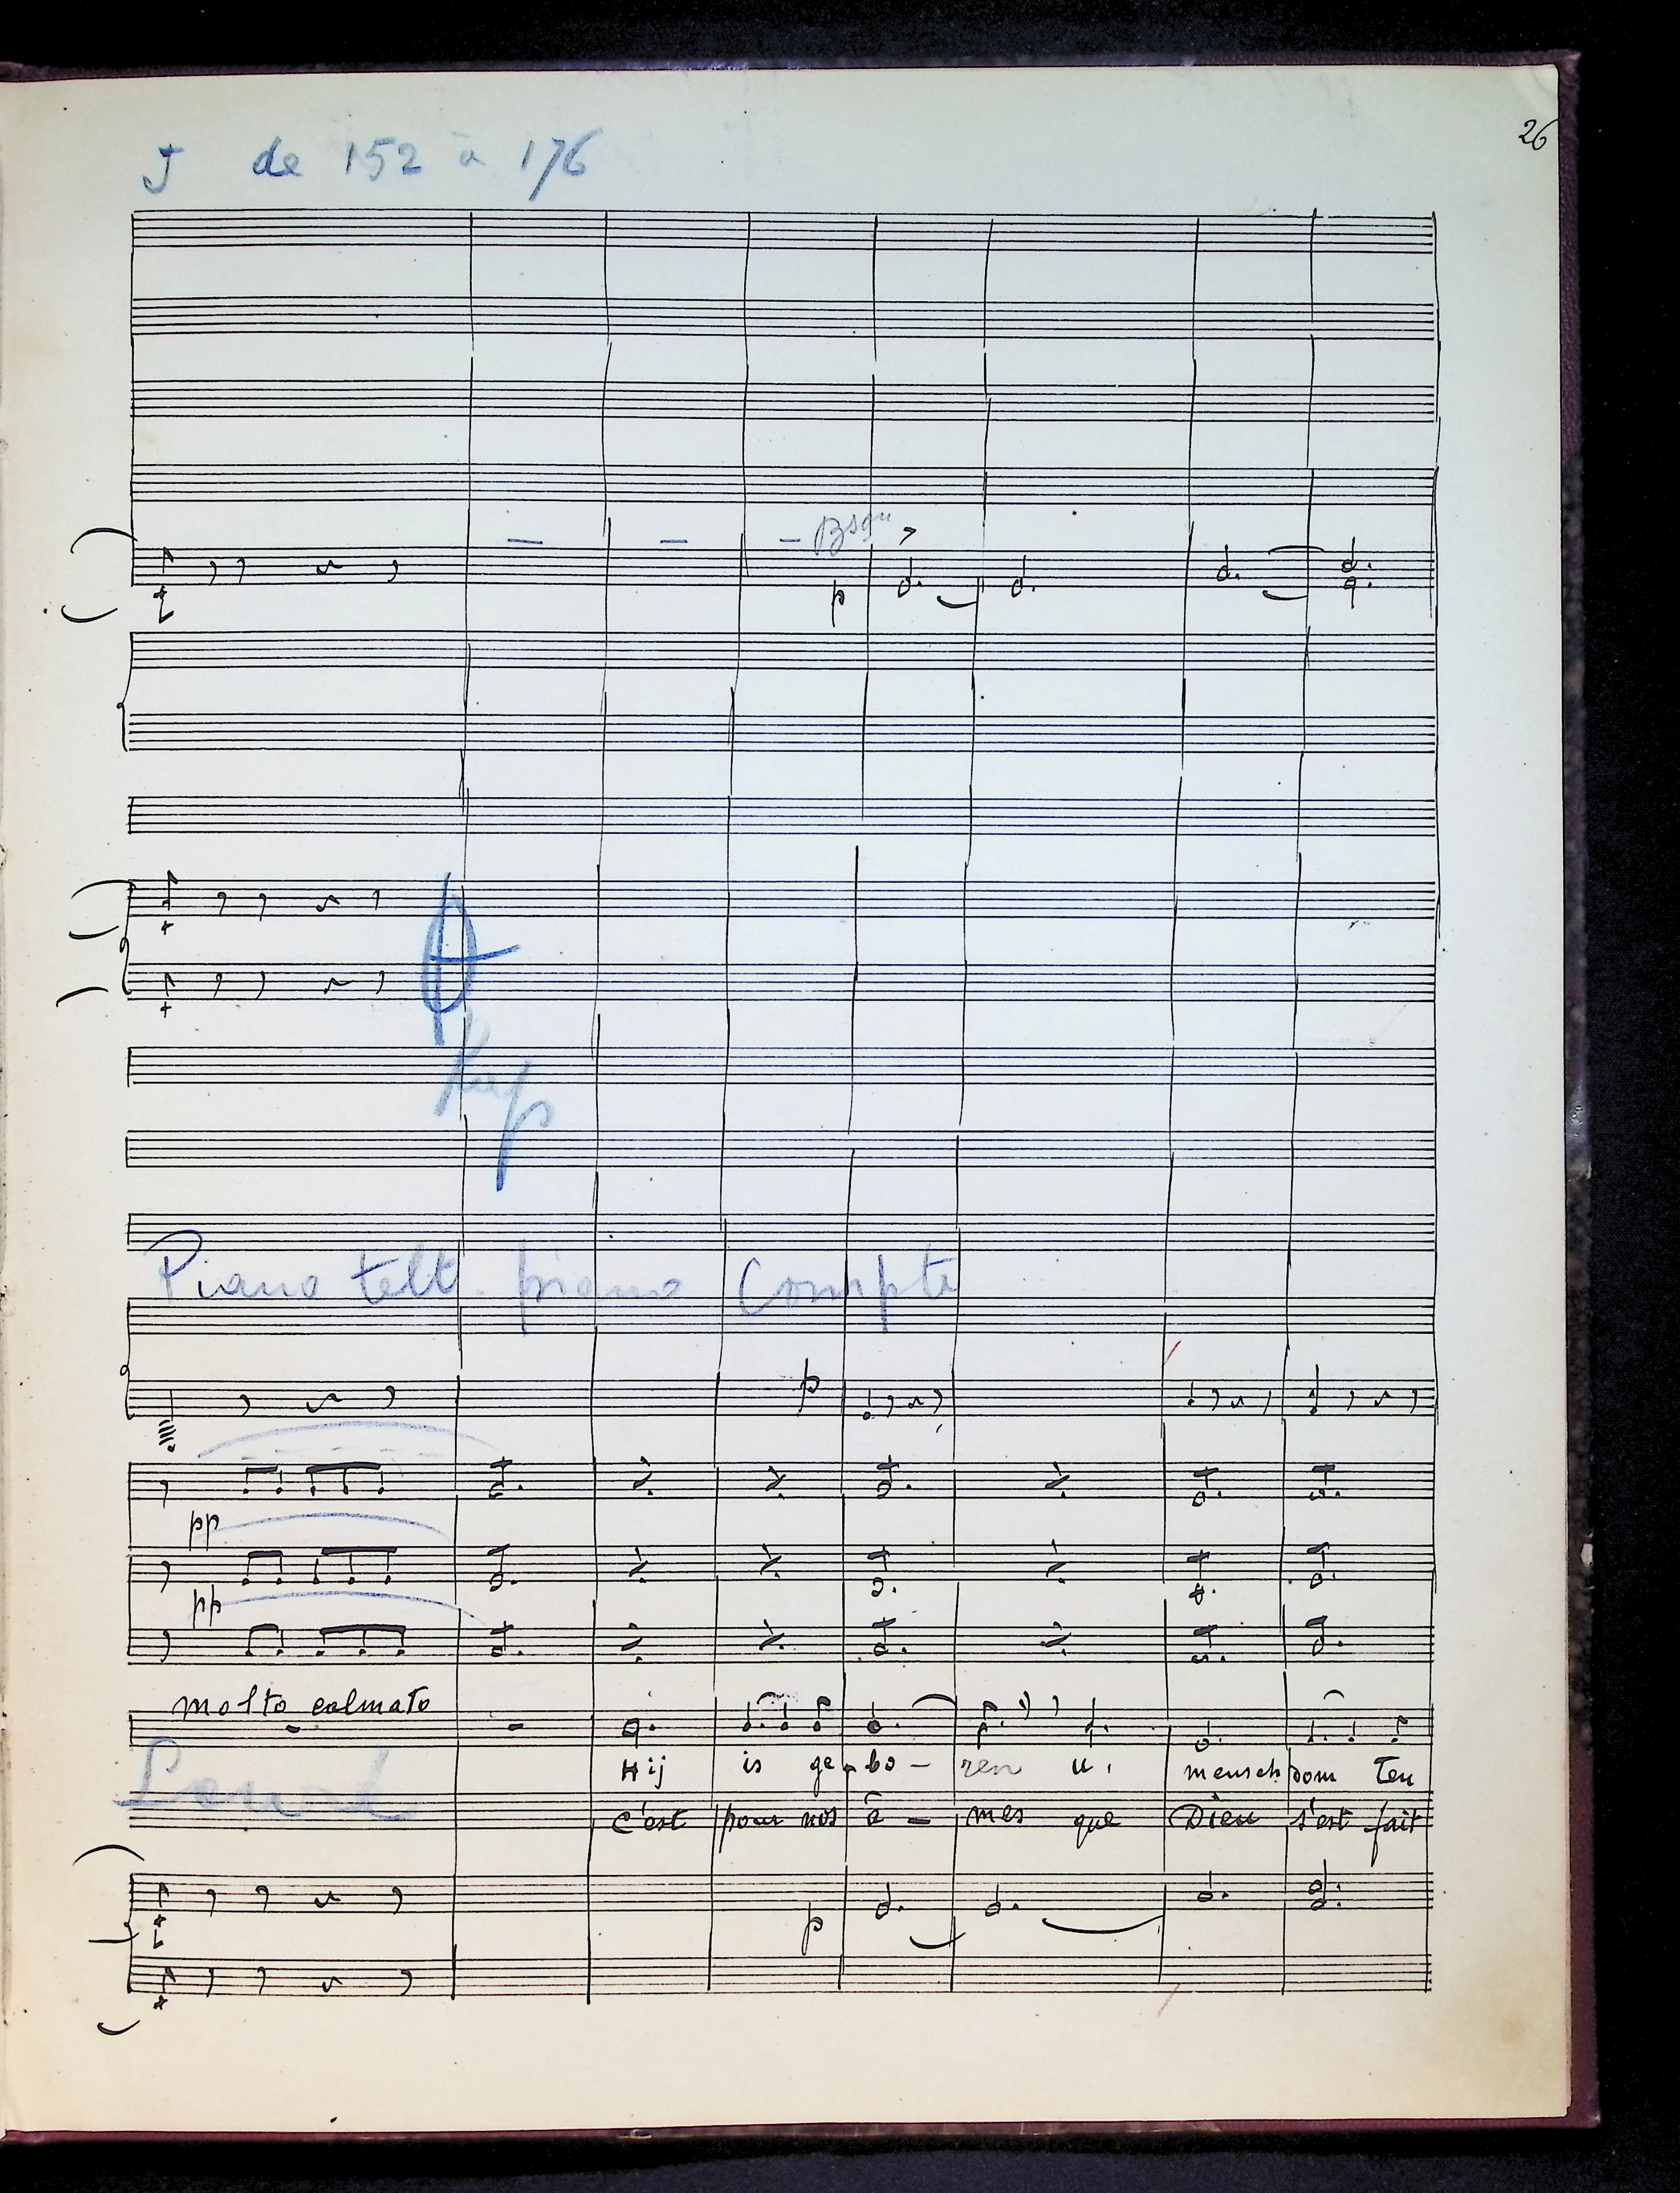 26
J de 152 à 176
Bson
p
Kap
Piano telt - piano Compte
p
pp
pp
molto calmato
Hij is ge - bo - ren u, menschdom ten
C'est pour nos â - mes que Dieu s'est fait
p